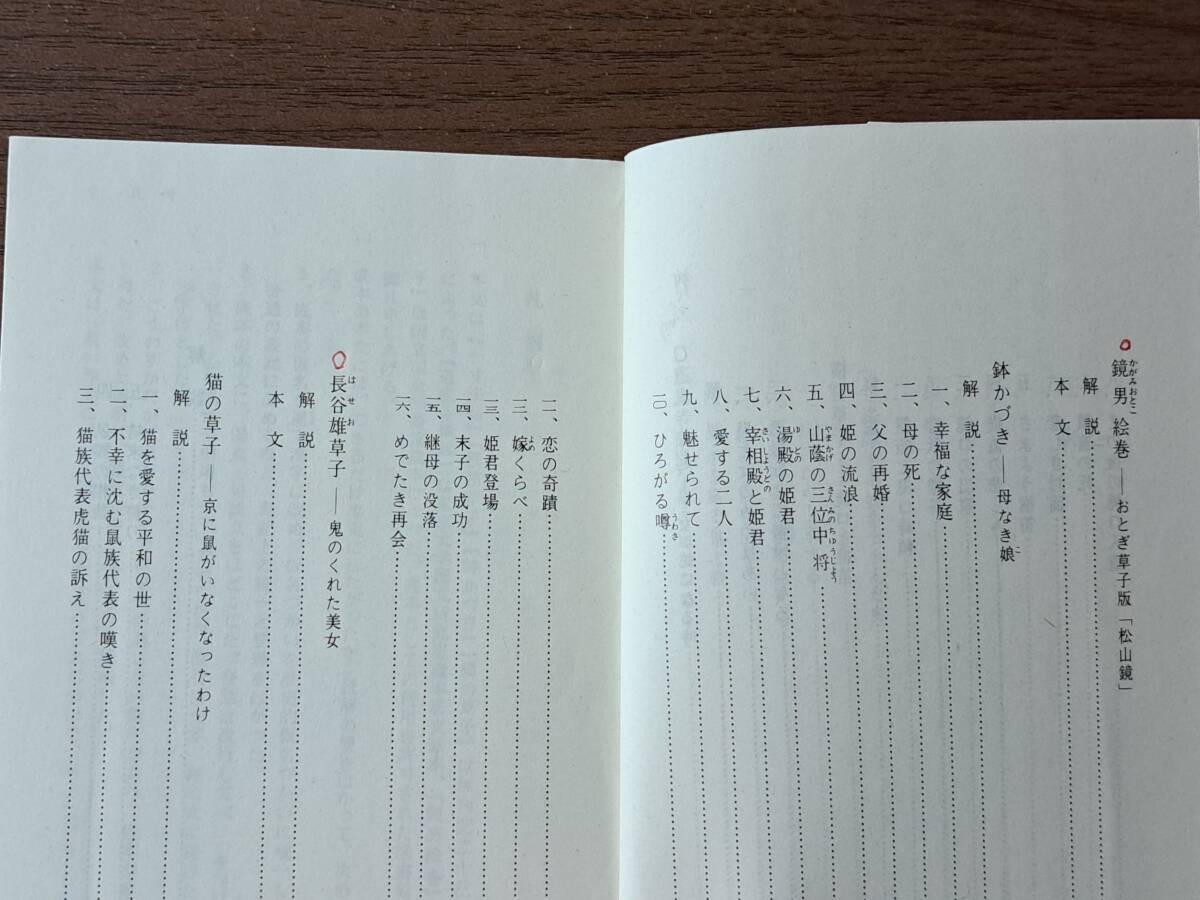 鏡男絵巻――おとぎ草子版「松山鏡」
解説
本文
鉢かづき――母なき娘
解説
一、幸福な家庭
二、母の死
三、父の再婚
四、姫の流浪
五、山蔭の三位中将
六、湯殿の姫君
七、宰相殿と姫君
八、愛する二人
九、魅せられて
一〇、ひろがる噂
一一、恋の奇蹟
一二、嫁くらべ
一三、姫君登場
一四、末子の成功
一五、継母の没落
一六、めでたき再会
長谷雄草子――鬼のくれた美女
解説
本文
猫の草子――京に鼠がいなくなったわけ
解説
一、猫を愛する平和の世
二、不幸に沈む鼠族代表の嘆き
三、猫族代表虎猫の訴え